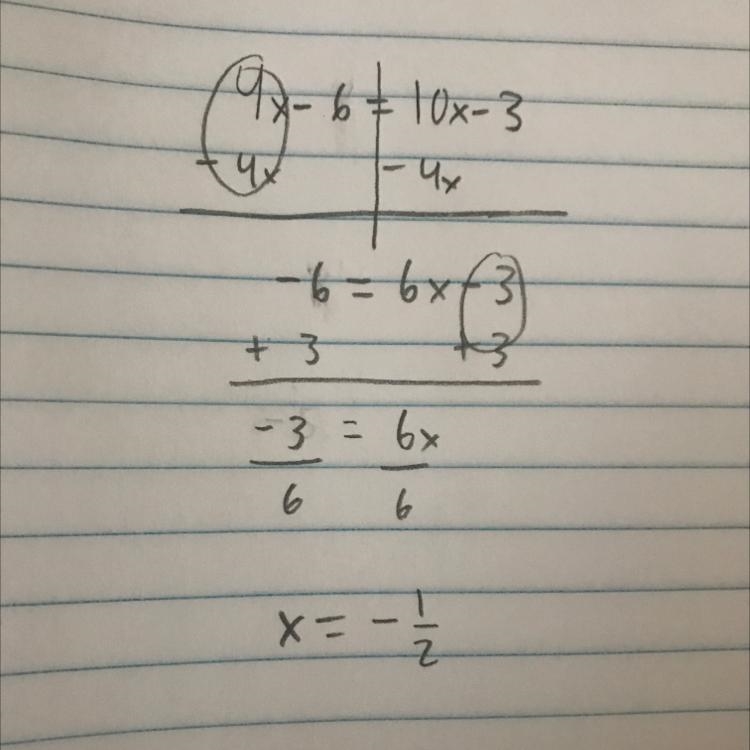 4x - 6 = 10x - 3
- 4x - 4x
-6 = 6x - 3
+ 3 + 3
-3 = 6x
6 6
x = - 1/2